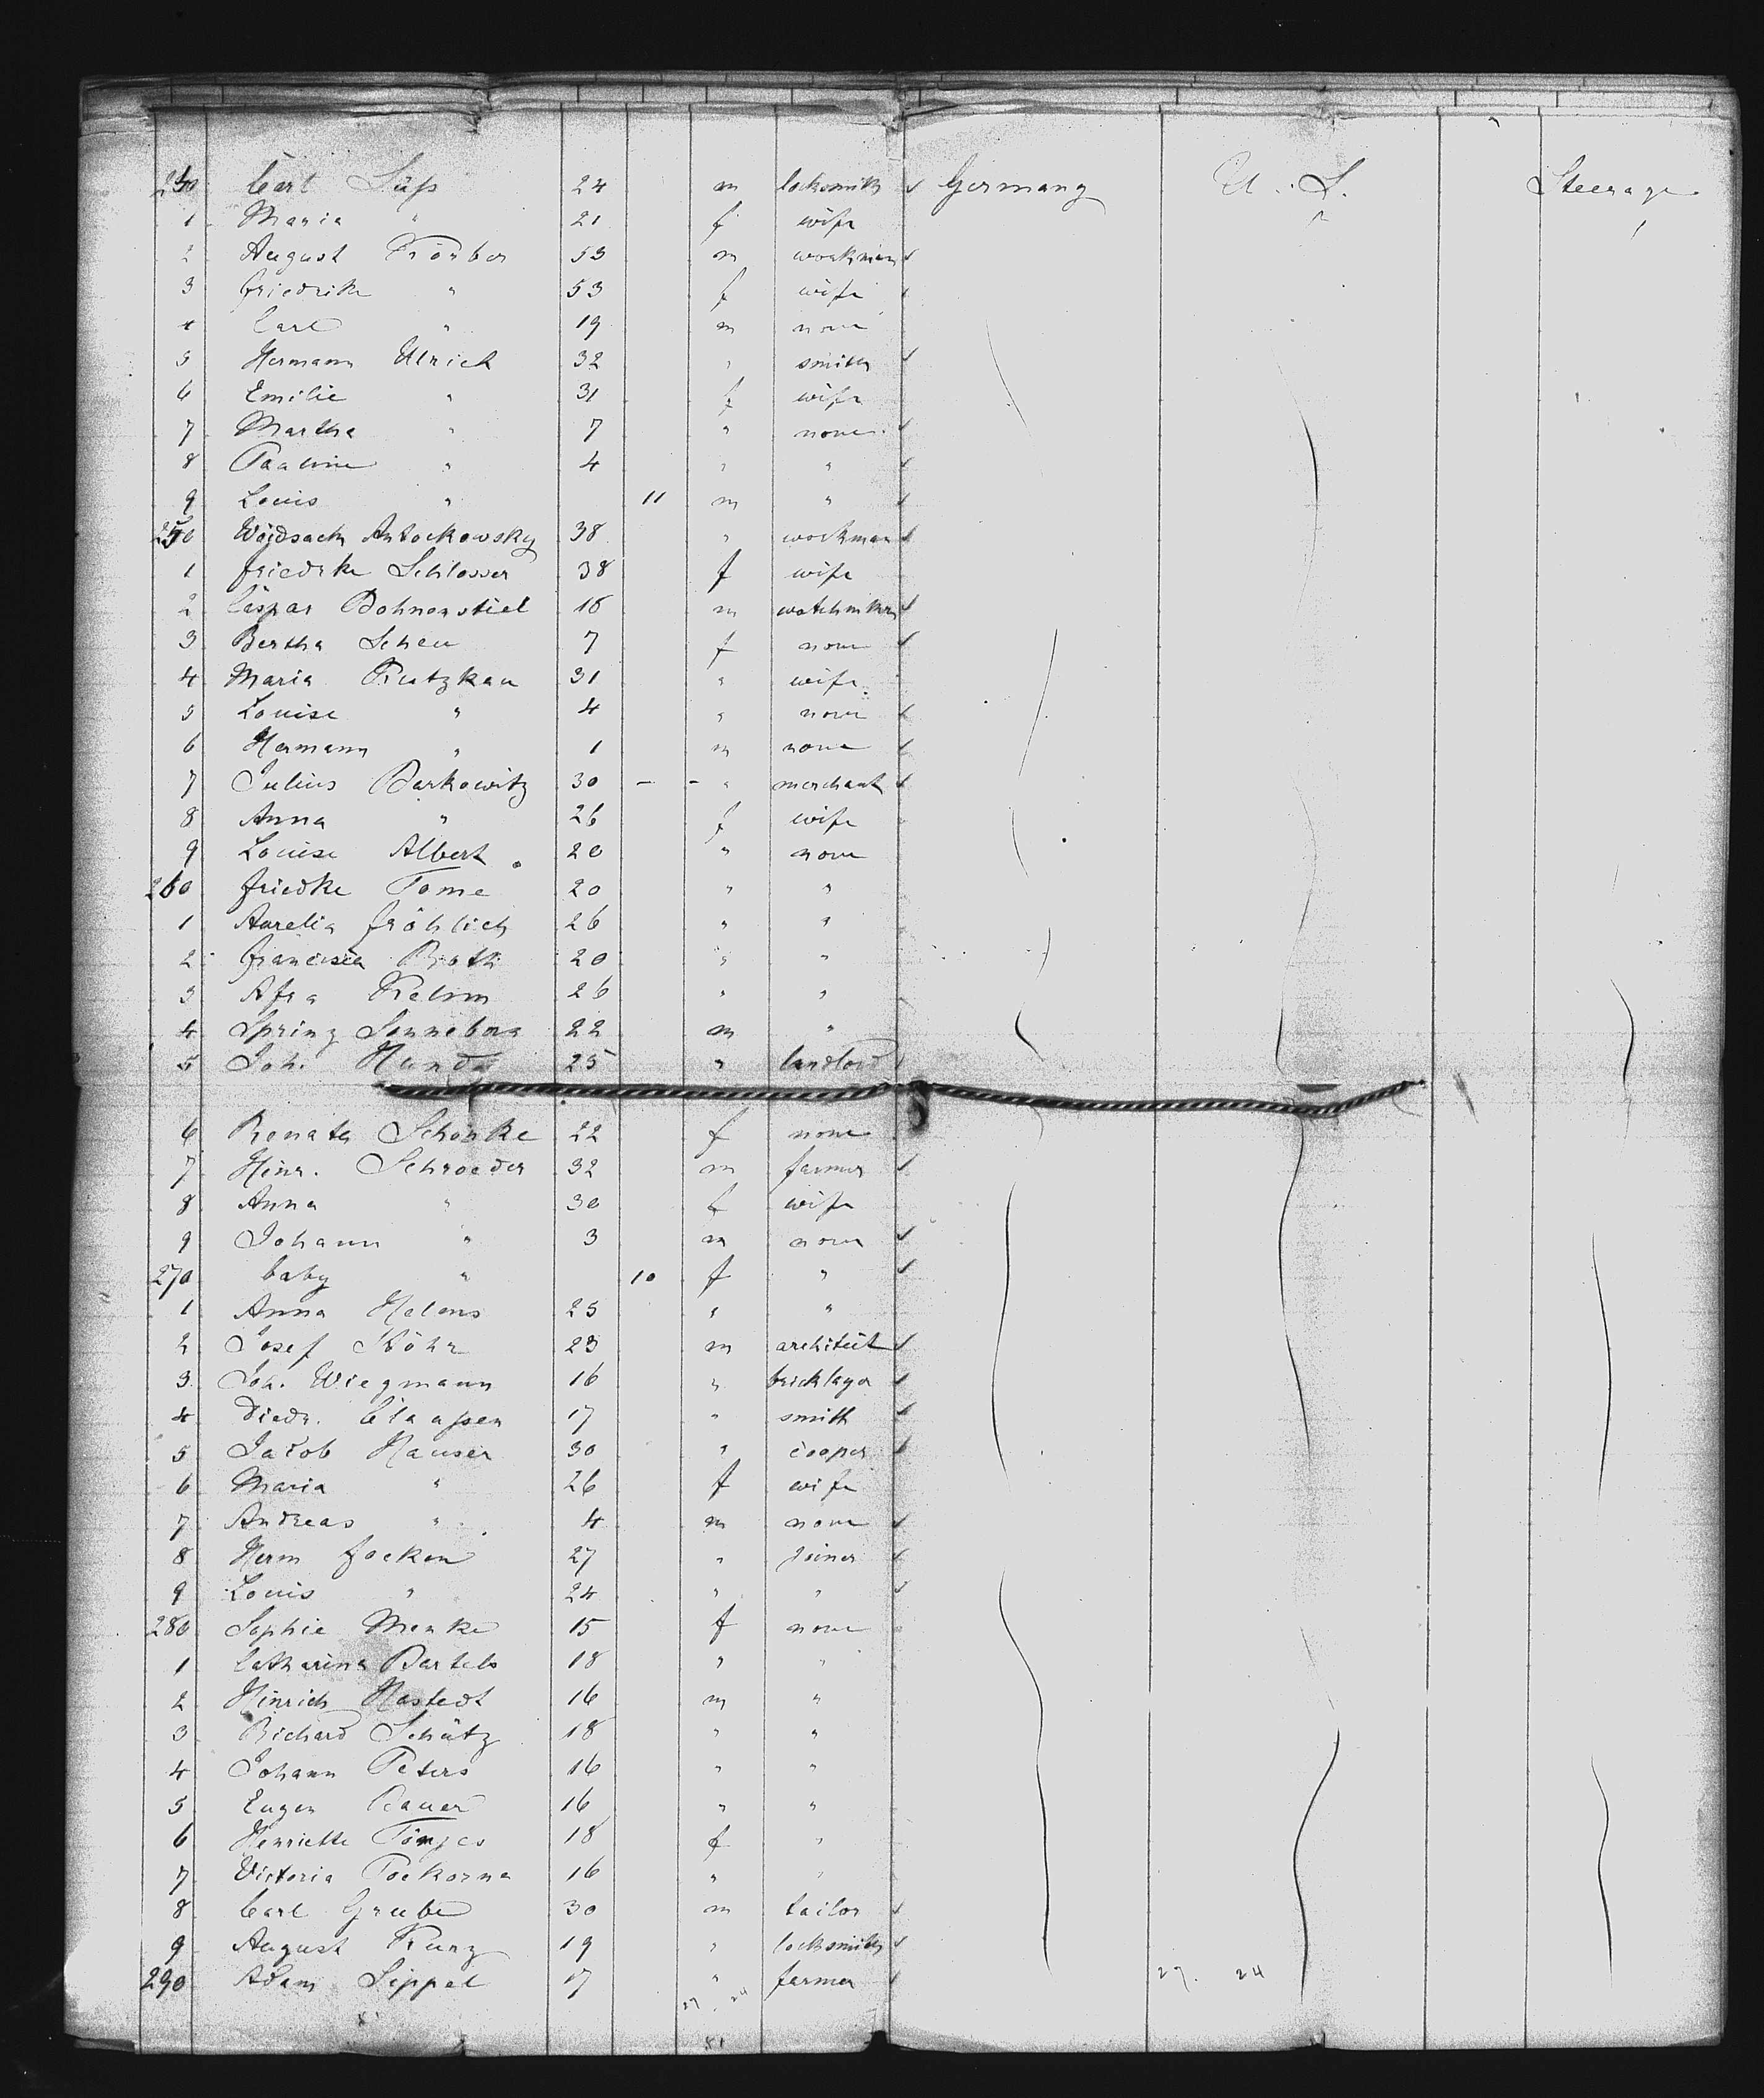 240 Carl Süß 24 m locksmith ✓ Germany U. S. Steerage
1 Maria " 21 f wife
2 August Körber 53 m workman ✓
3 Friedrike " 53 f wife
4 Carl " 19 m none
5 Hermann Ulrich 32 " smith ✓
6 Emilie " 31 f wife
7 Martha " 7 " none ✓
8 Pauline " 4 " " ✓
9 Louis " 11 m " ✓
250 Woidsach Antockowsky 38 " workman ✓
1 Friedrke Schlosser 38 f wife
2 Caspar Bohnenstiel 18 m ✓
3 Bertha Scheu 7 f none ✓
4 Maria Rutzkau 31 " wife
5 Louise " 4 " none ✓
6 Hermann " 1 m none ✓
7 Julius Barkowitz 30 - - " merchant ✓
8 Anna " 26 f wife
9 Louise Albert 20 " none
260 Friedke Tome 20 " "
1 Aurelia Fröhlich 26 " "
2 Francisca Roth 20 " "
3 Afra Kelim 26 " "
4 Spring Sonneborn 22 m "
5 Joh. Hund 25 " landlord
6 Renata Schönke 22 f none
7 Hinr. Schroeder 32 m farmer ✓
8 Anna " 30 f wife
9 Johann " 3 m none ✓
270 baby " 10 f " ✓
1 Anna Melons 25 " "
2 Josef Röhr 23 m architect ✓
3 Joh. Wiegmann 16 " bricklayer ✓
4 Diedr. Claaßen 17 " smith ✓
5 Jacob Hauser 30 " cooper ✓
6 Maria " 26 f wife
7 Andreas " 4 m none ✓
8 Herm Focken 27 " joiner ✓
9 Louis " 24 " " ✓
280 Sophie Menke 15 f none
1 Catharina Bartels 18 " "
2 Hinrich Hastedt 16 m "
3 Richard Schütz 18 " "
4 Johann Peters 16 " "
5 Eugen Bauer 16 " "
6 Henriette Tönjes 18 f "
7 Victoria Pockorna 16 " "
8 Carl Grube 30 m tailor ✓
9 August Kunz 19 " locksmith ✓
290 Adam Lippel 17 " farmer ✓
27. 24 27. 24